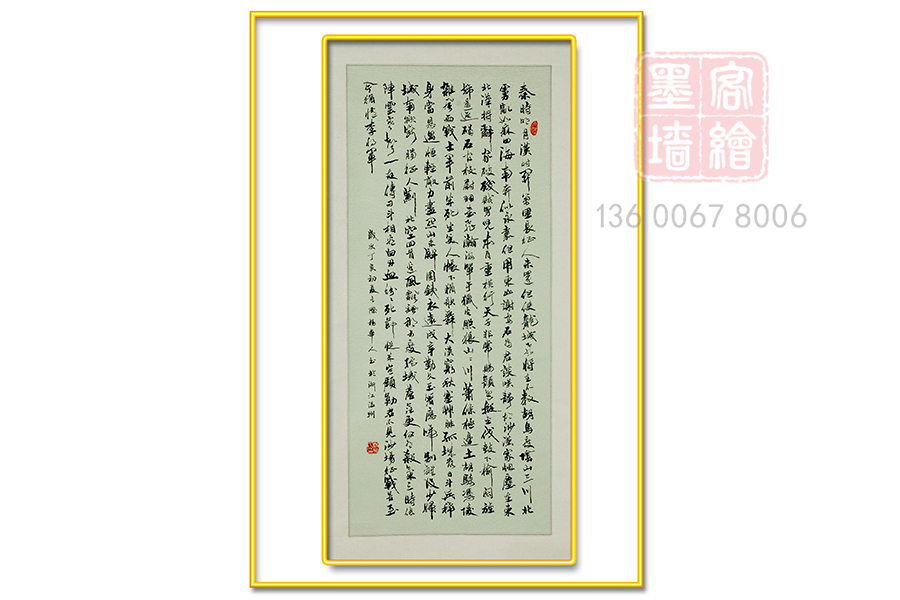 秦時明月漢時關萬里長征人未還但使龍城飛將在不教胡馬度陰山三川北
虜亂如麻四海南奔似永嘉但用東山謝安石為君談笑靜胡沙漢家煙塵在東
北漢將辭家破殘賊男兒本自重橫行天子非常賜顏色摐金伐鼓下榆關旌
旆逶迤碣石間校尉羽書飛瀚海單于獵火照狼山〻川蕭條極邊土胡騎憑陵
雜風雨戰士軍前半死生美人帳下猶歌舞大漠窮秋塞草腓孤城落日斗兵稀
身當恩遇恒輕敵力盡關山未解圍鐵衣遠戍辛勤久玉箸應啼別離後少婦
城南欲斷腸征人薊北空回首邊風飄〻那可度絕域蒼茫更何有殺氣三時作
陣雲寒聲一夜傳刁斗相看白刃血紛〻死節從來豈顧勳君不見沙場征戰苦至
今猶憶李將軍
歲次丁亥初夏之際楊華人書於浙江溫州
墨客
墙繪
136 0067 8006